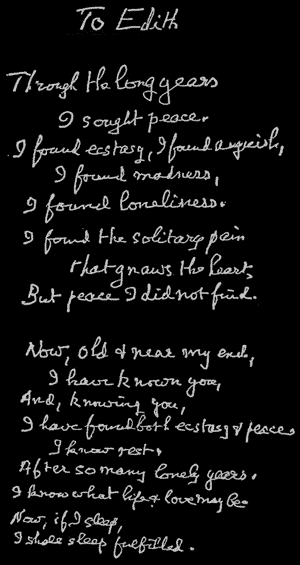 To Edith
Through the long years
I sought peace.
I found ecstasy, I found anguish,
I found madness,
I found loneliness.
I found the solitary pain
that gnaws the heart,
But peace I did not find.
Now, old & near my end,
I have known you,
And, knowing you,
I have found both ecstasy & peace
I know rest.
After so many lonely years.
I know what life & love may be.
Now, if I sleep,
I shall sleep fulfilled.